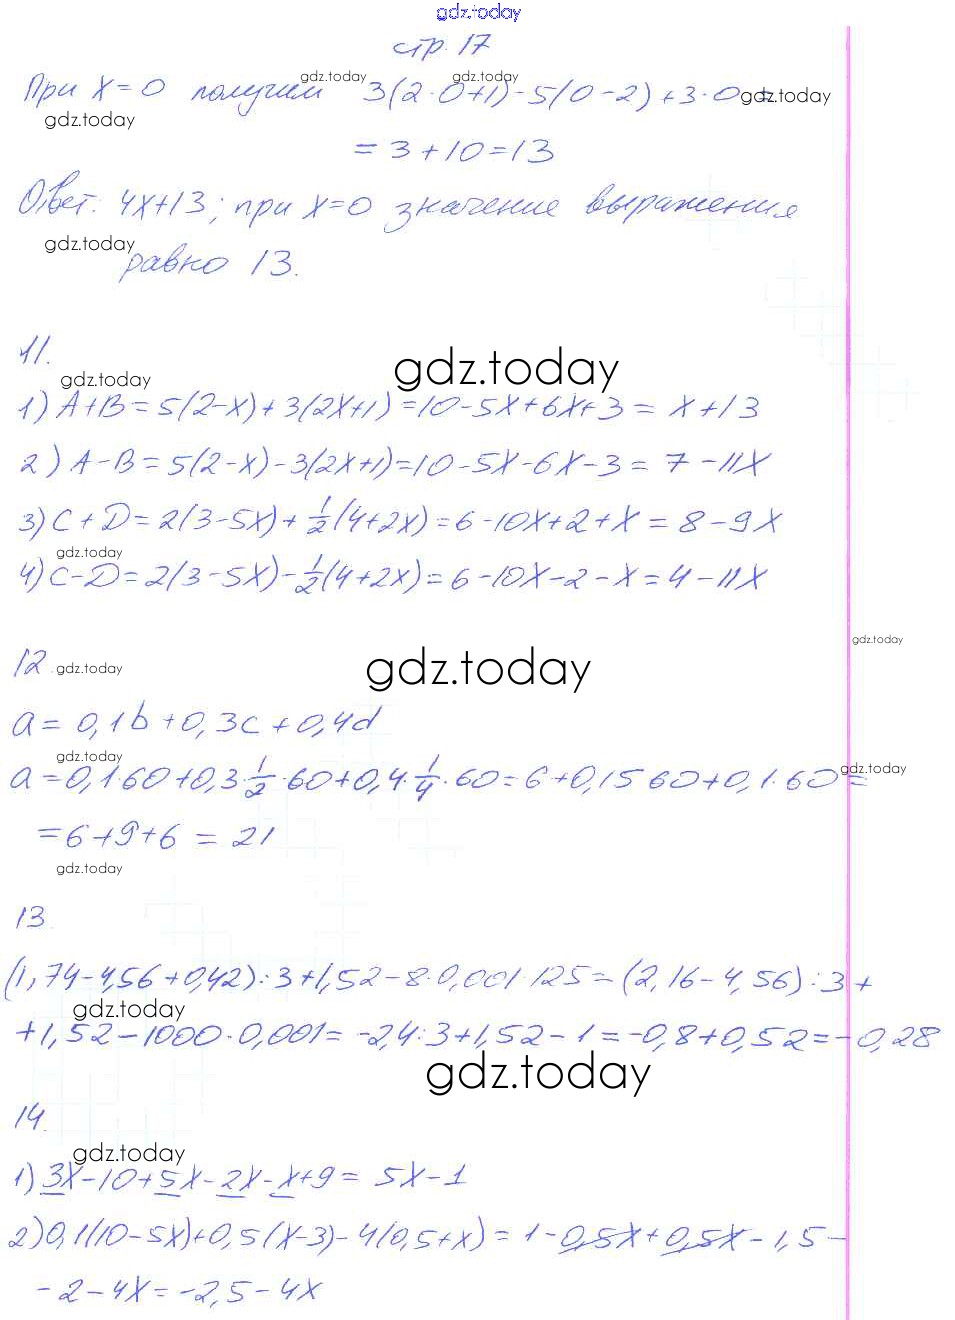 gdz.today
стр. 17
При x=0 получим 3(2·0+1)-5(0-2)+3·0=
gdz.today gdz.today gdz.today
gdz.today
=3+10=13
Ответ: 4x+13; при x=0 значение выражения
gdz.today
равно 13.
11.
gdz.today
gdz.today
1) A+B=5(2-x)+3(2x+1)=10-5x+6x+3= x+13
2) A-B=5(2-x)-3(2x+1)=10-5x-6x-3= 7-11x
3) C+D=2(3-5x)+1/2(4+2x)=6-10x+2+x=8-9x
gdz.today
4) C-D=2(3-5x)-1/2(4+2x)=6-10x-2-x=4-11x
gdz.today
12.
gdz.today
gdz.today
a= 0,1b+0,3c+0,4d
gdz.today
gdz.today
a=0,1·60+0,3·1/2·60+0,4·1/4·60=6+0,15 60+0,1·60=
=6+9+6 = 21
gdz.today
13.
(1,74-4,56+0,42):3+1,52-8·0,001·125=(2,16-4,56):3+
gdz.today
+1,52-1000·0,001=-2,4:3+1,52-1=-0,8+0,52=-0,28
gdz.today
14.
gdz.today
1) 3x-10+5x-2x-x+9= 5x-1
2) 0,1(10-5x)+0,5(x-3)-4(0,5+x)=1-0,5x+0,5x-1,5-
-2-4x=-2,5-4x